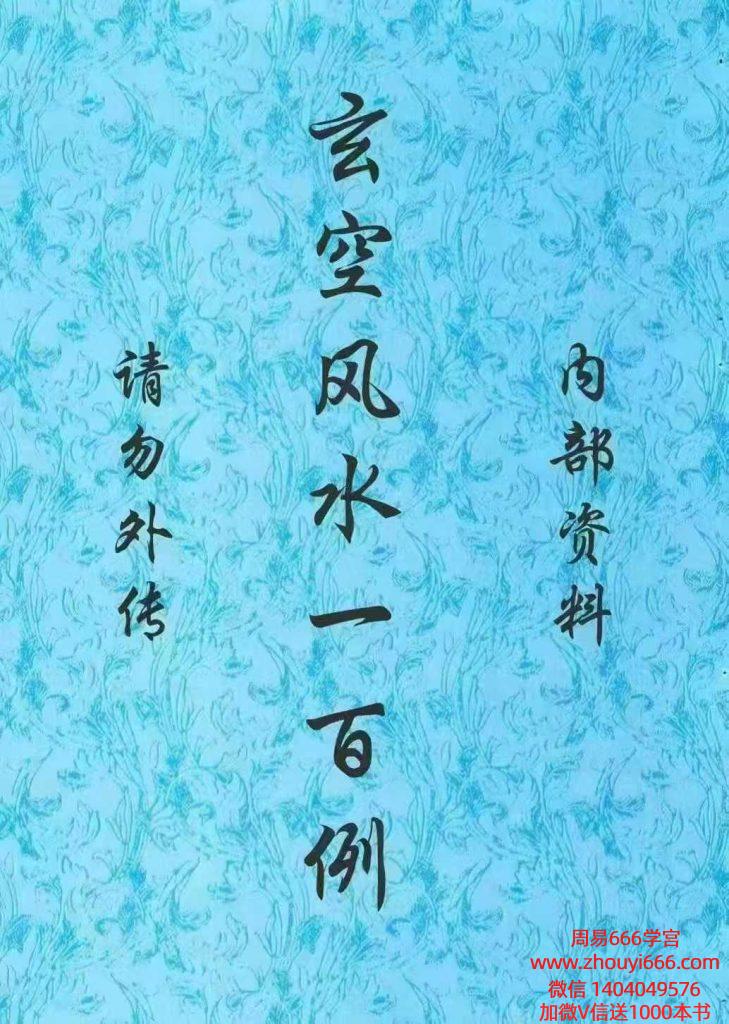 内部资料
玄空风水一百例
请勿外传
周易666学宫
www.zhouyi666.com
微信 1404049576
加微V信送1000本书